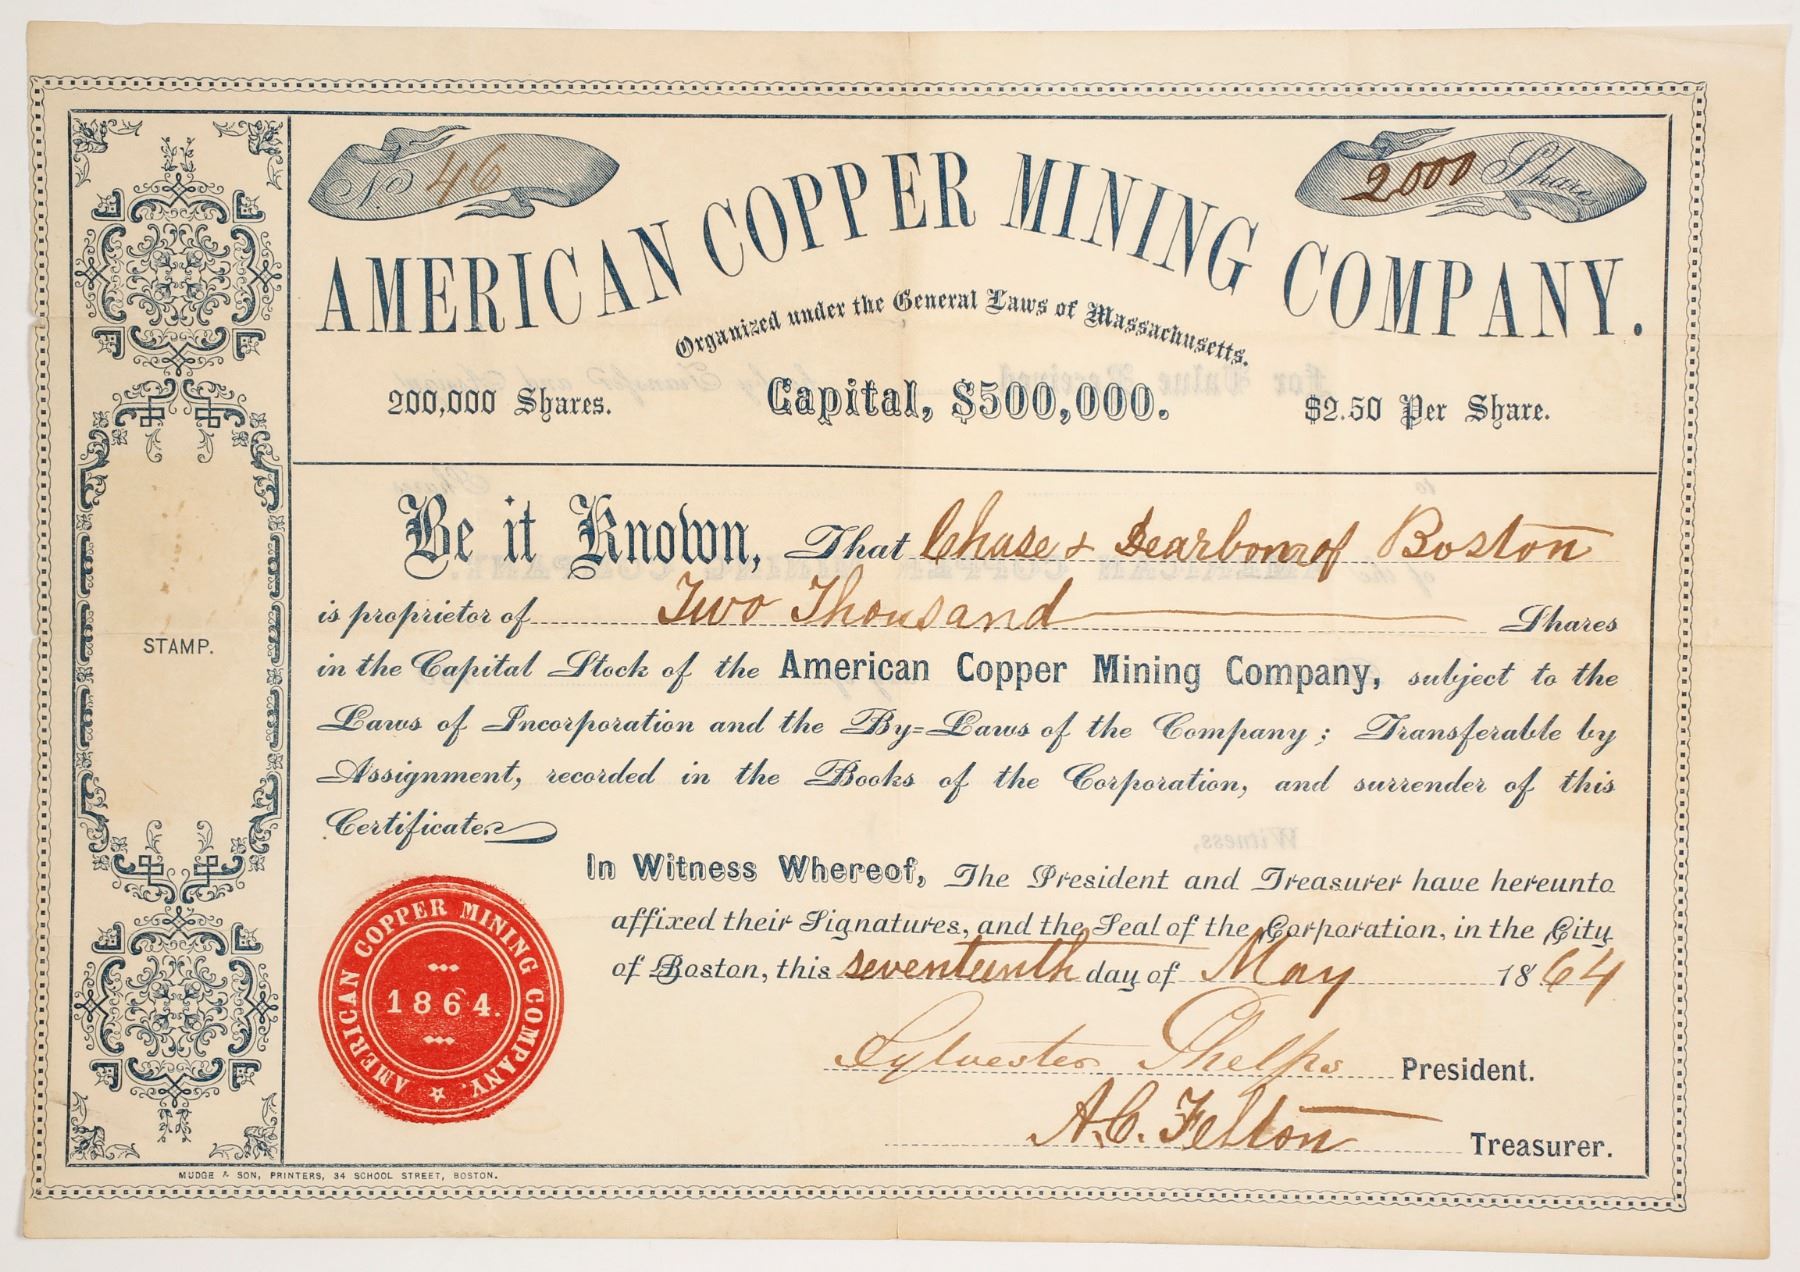 No. 46
2000 Shares
AMERICAN COPPER MINING COMPANY.
Organized under the General Laws of Massachusetts.
200,000 Shares.
Capital, $500,000.
$2.50 Per Share.
Be it Known, That Chase & Dearborn of Boston
is proprietor of Two Thousand Shares
in the Capital Stock of the American Copper Mining Company, subject to the
Laws of Incorporation and the By=Laws of the Company; Transferable by
Assignment, recorded in the Books of the Corporation, and surrender of this
Certificate.
In Witness Whereof, The President and Treasurer have hereunto
affixed their Signatures, and the Seal of the Corporation, in the City
of Boston, this seventeenth day of May 1864
Sylvester Phelps President.
A.C. Felton Treasurer.
STAMP.
AMERICAN COPPER MINING COMPANY.
1864.
MUDGE & SON, PRINTERS, 34 SCHOOL STREET, BOSTON.